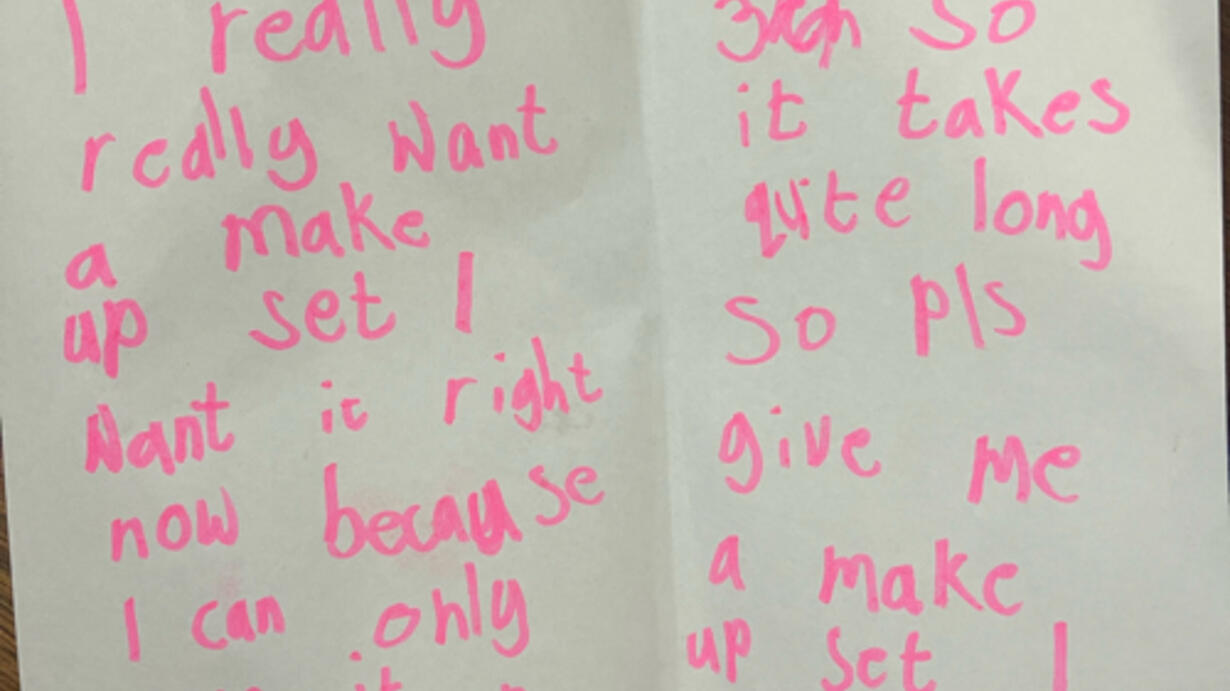 I really
really want
a make
up set I
want it right
now because
I can only
it
so
it takes
quite long
so pls
give me
a make
up set I